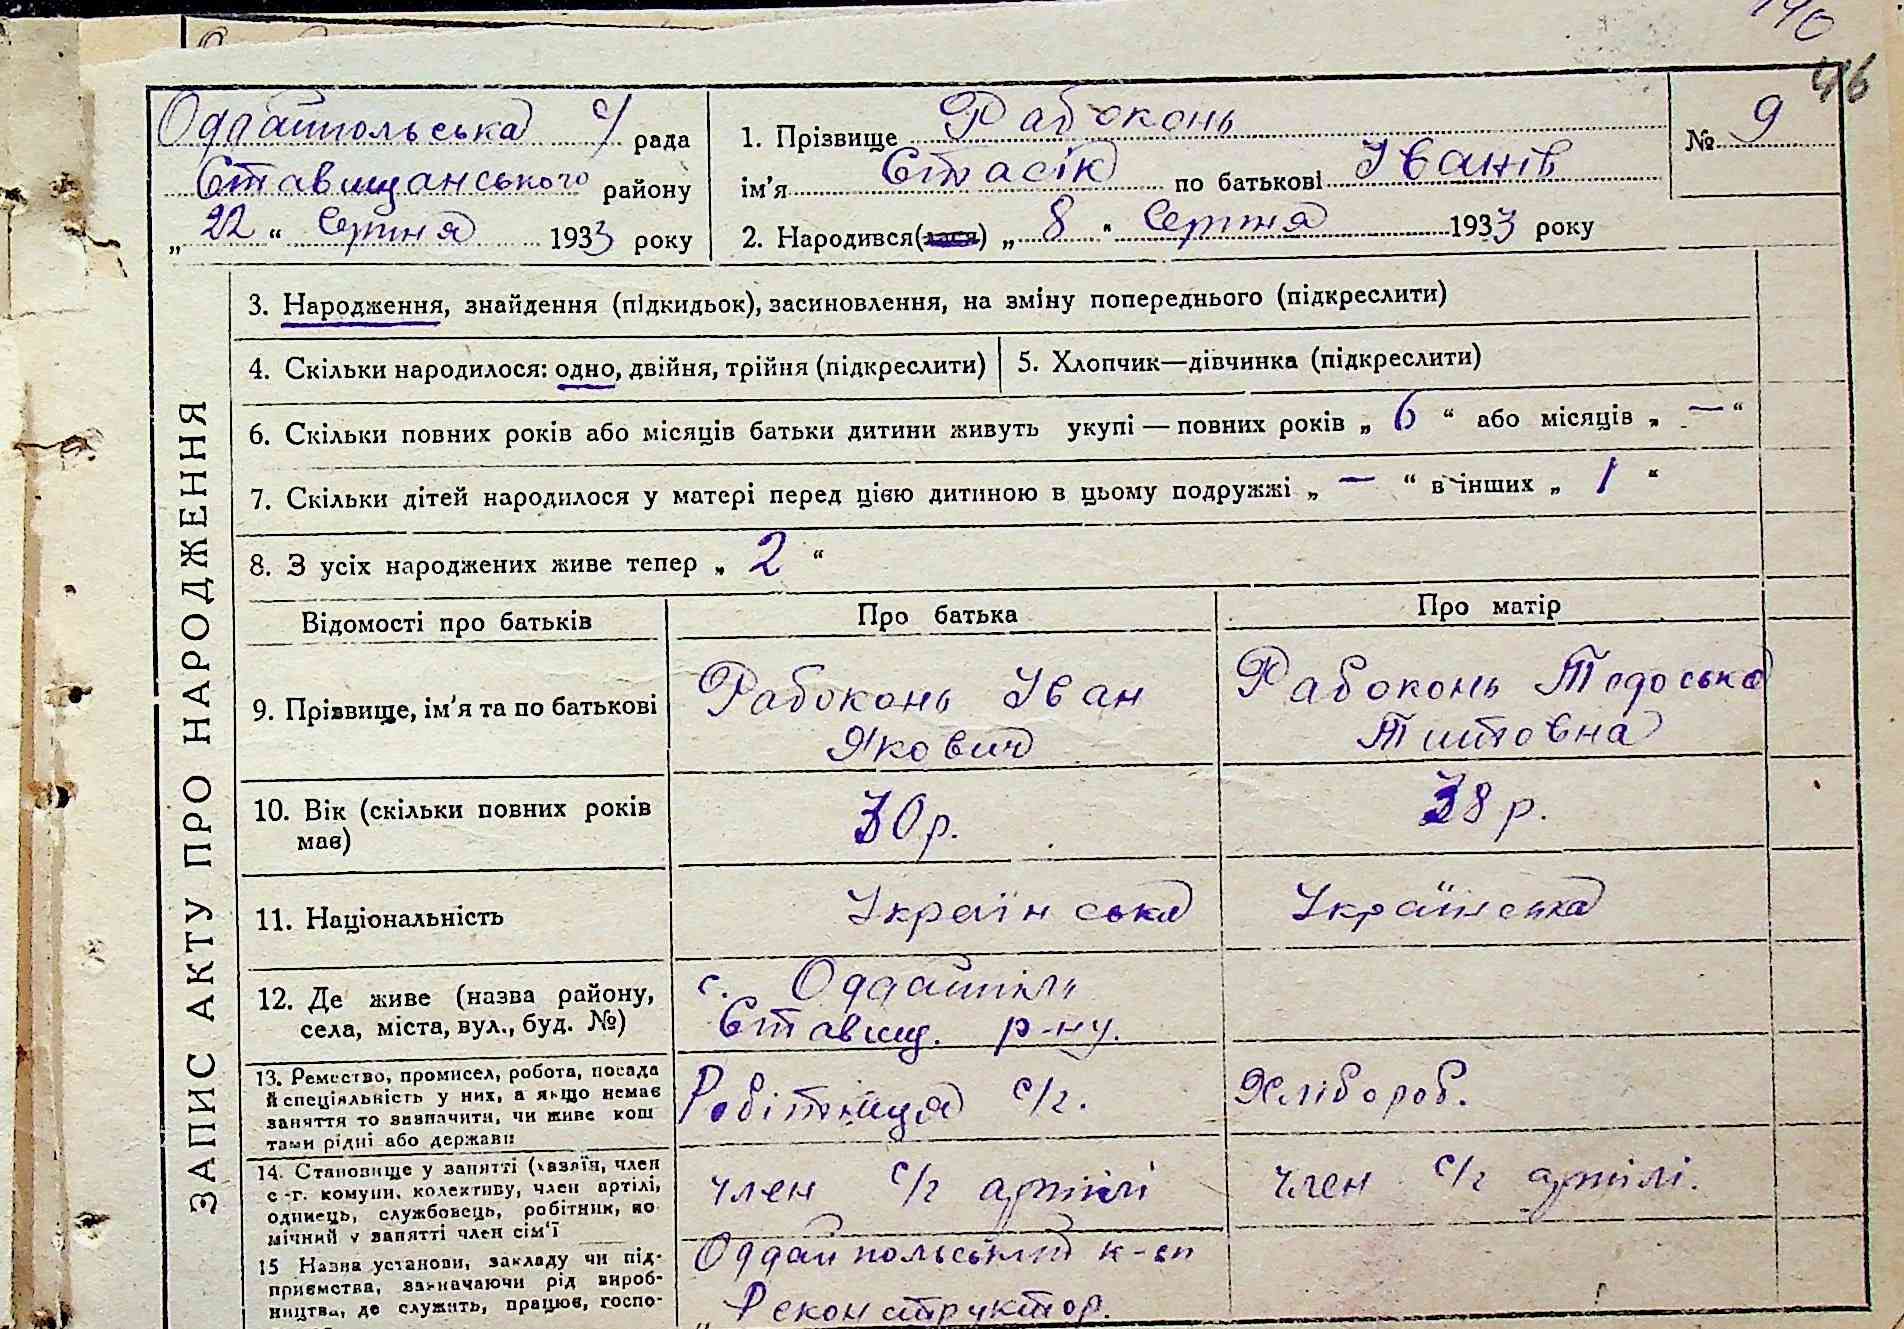 46
Оддайпольська с/ рада
Ставищанського району
„ 22 “ Серпня 1933 року
1. Прізвище Рабоконь
ім'я Стасік по батькові Іванів
2. Народився(лася) „ 8 “ Серпня 1933 року
№ 9
ЗАПИС АКТУ ПРО НАРОДЖЕННЯ
3. Народження, знайдення (підкидьок), засиновлення, на зміну попереднього (підкреслити)
4. Скільки народилося: одно, двійня, трійня (підкреслити)
5. Хлопчик—дівчинка (підкреслити)
6. Скільки повних років або місяців батьки дитини живуть укупі — повних років „ 6 “ або місяців „ — “
7. Скільки дітей народилося у матері перед цією дитиною в цьому подружжі „ — “ в інших „ 1 “
8. З усіх народжених живе тепер „ 2 “
Відомості про батьків
Про батька
Про матір
9. Прізвище, ім'я та по батькові
Рабоконь Іван
Якович
Рабоконь Тодоська
Титовна
10. Вік (скільки повних років
має)
30 р.
38 р.
11. Національність
Українська
Українська
12. Де живе (назва району,
села, міста, вул., буд. №)
с. Оддайпіль
Ставищ. р-ну.
13. Ремество, промисел, робота, посада
й спеціяльність у них, а якщо немає
заняття то зазначити, чи живе кош
тами рідні або держави
Робітниця с/г.
Хлібороб.
14. Становище у занятті (хазяїн, член
с.-г. комуни, колективу, член артілі,
одинець, службовець, робітник, по
мічний у занятті член сім'ї
член с/г артілі
член с/г артілі.
15 Назва установи, закладу чи під-
приємства, зазначаючи рід вироб-
ництва, де служить, працює, госпо-
Оддайпольський к-сп
„ Реконструктор.